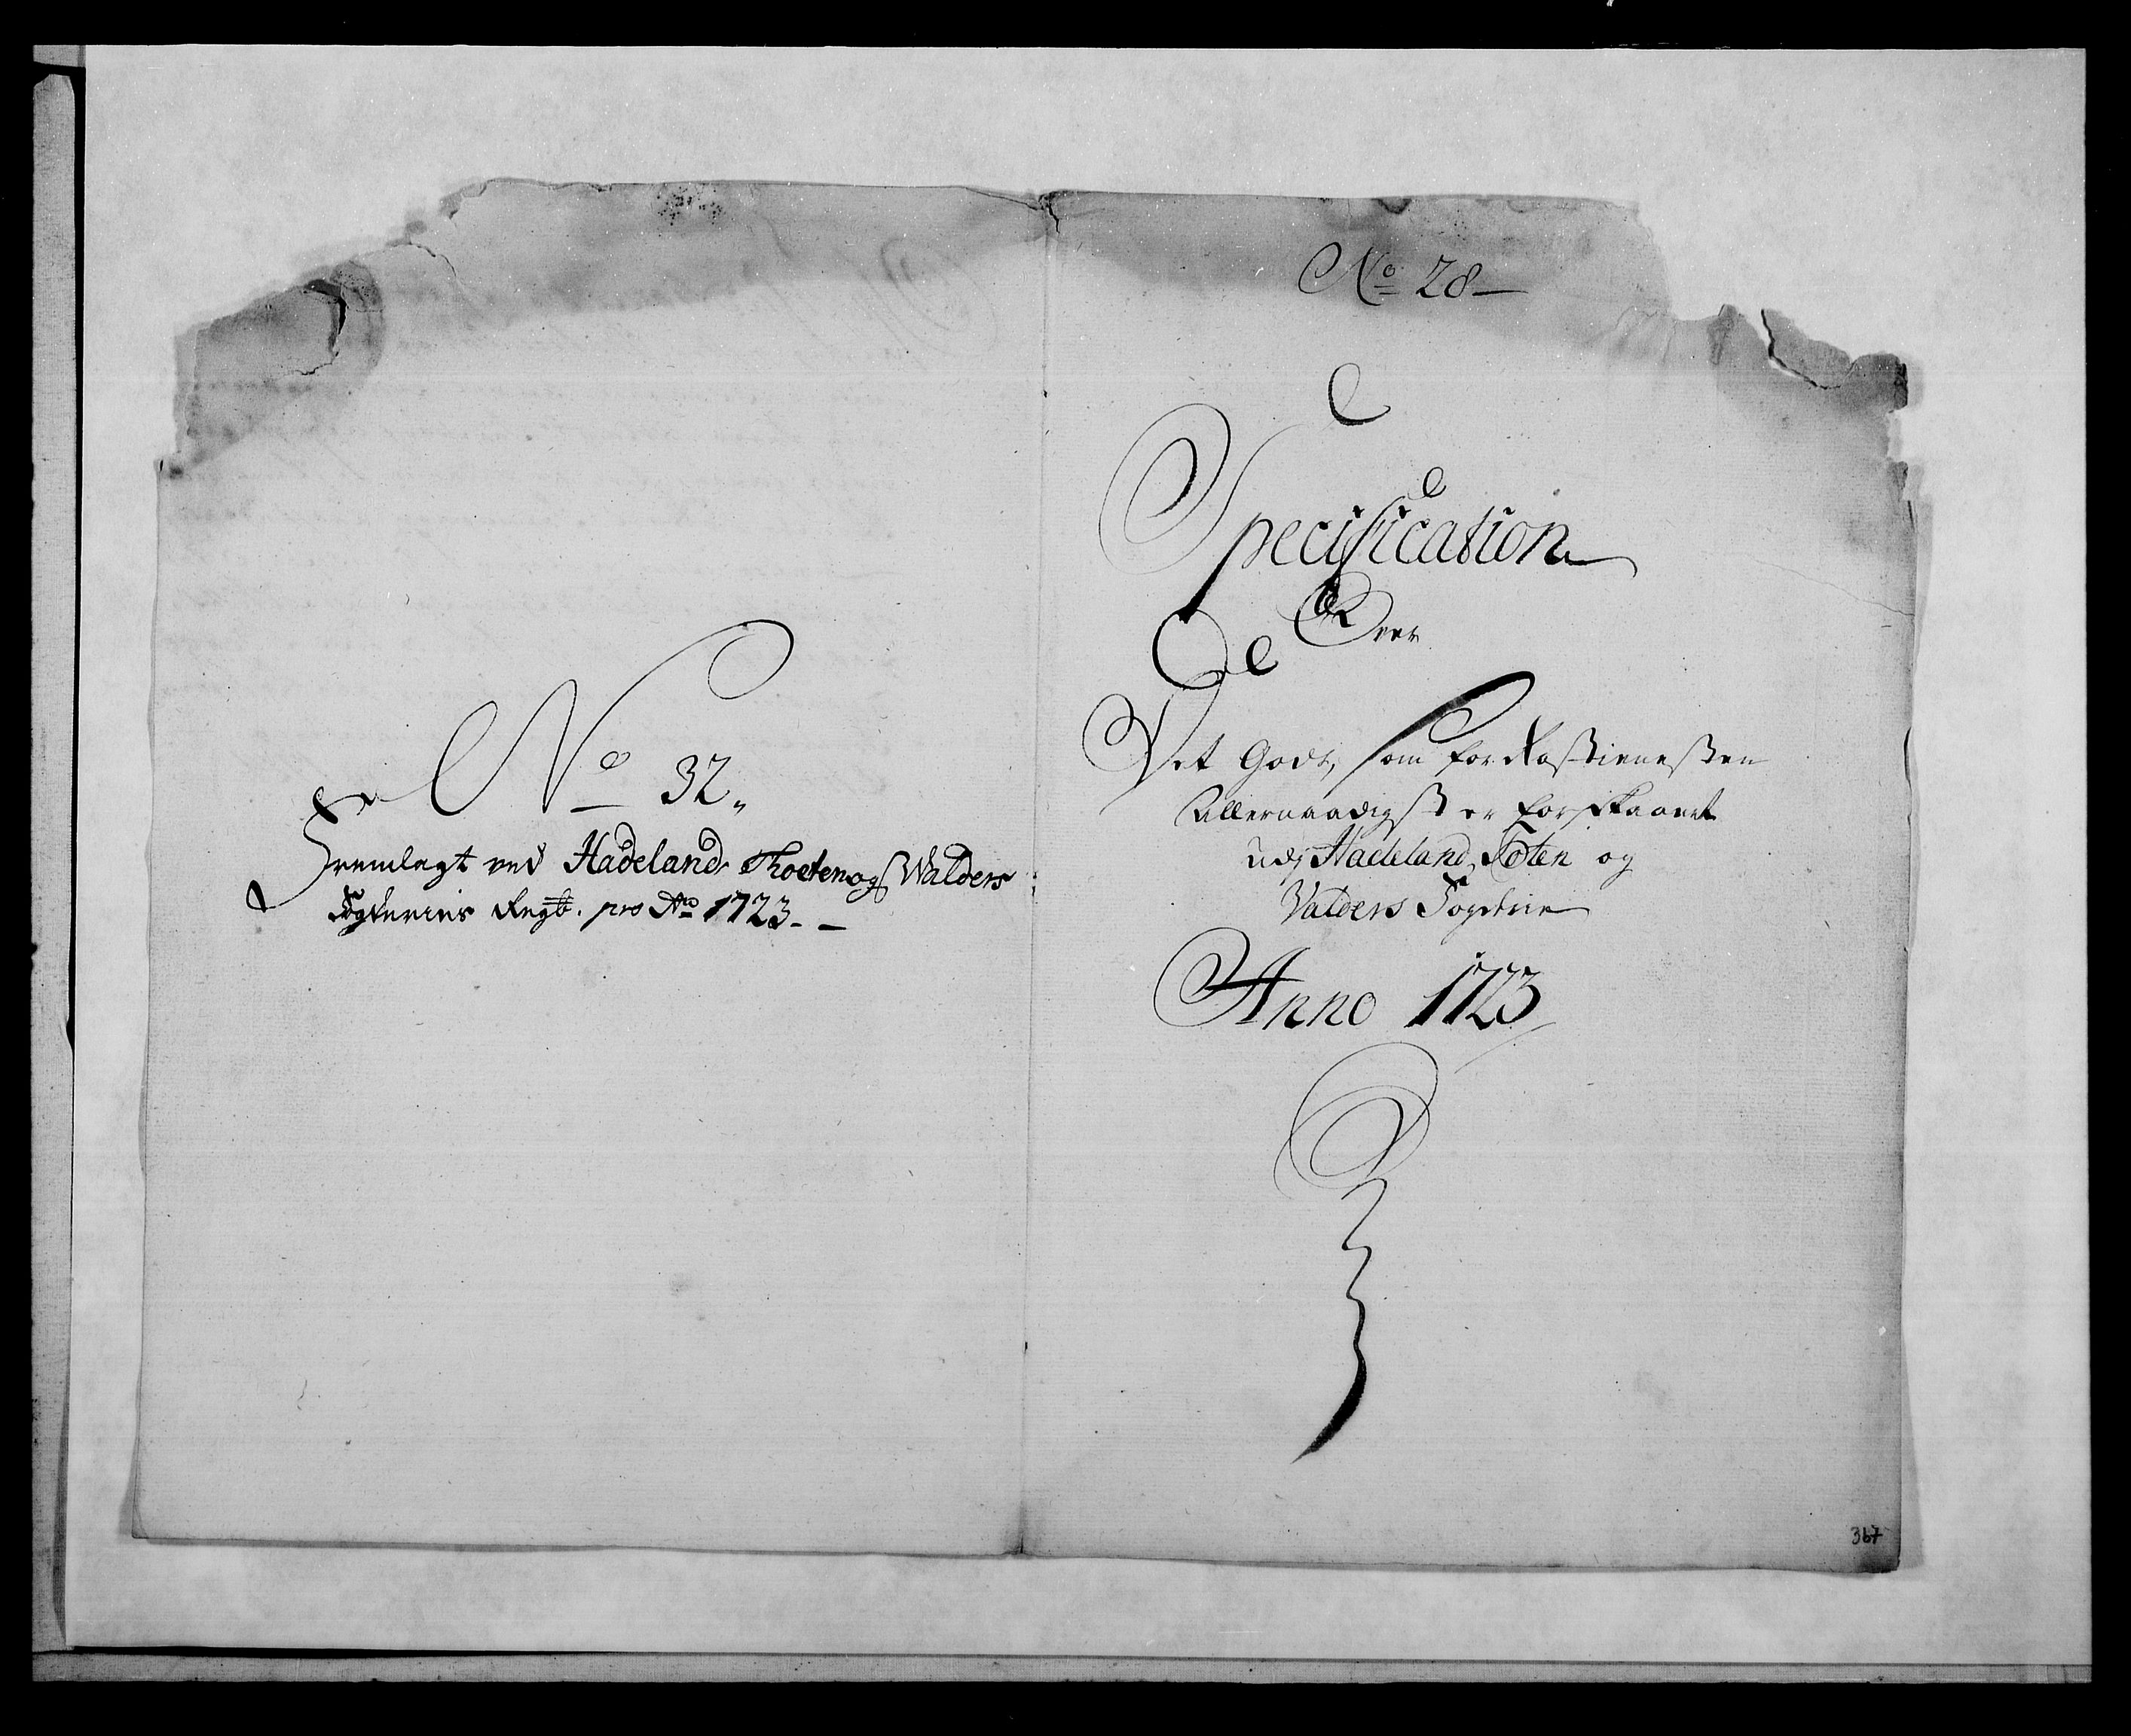 No 32.
Fremlagt ved Hadeland, Thoten og Walders
Fogderies Regb. pro Ao 1723.
No 28
Specification
Over
Det Gods, som for Rostienesten
Allernaadigst er forskaanet
udj Hadeland, Toten og
Valders Fogderie
Anno 1723
367